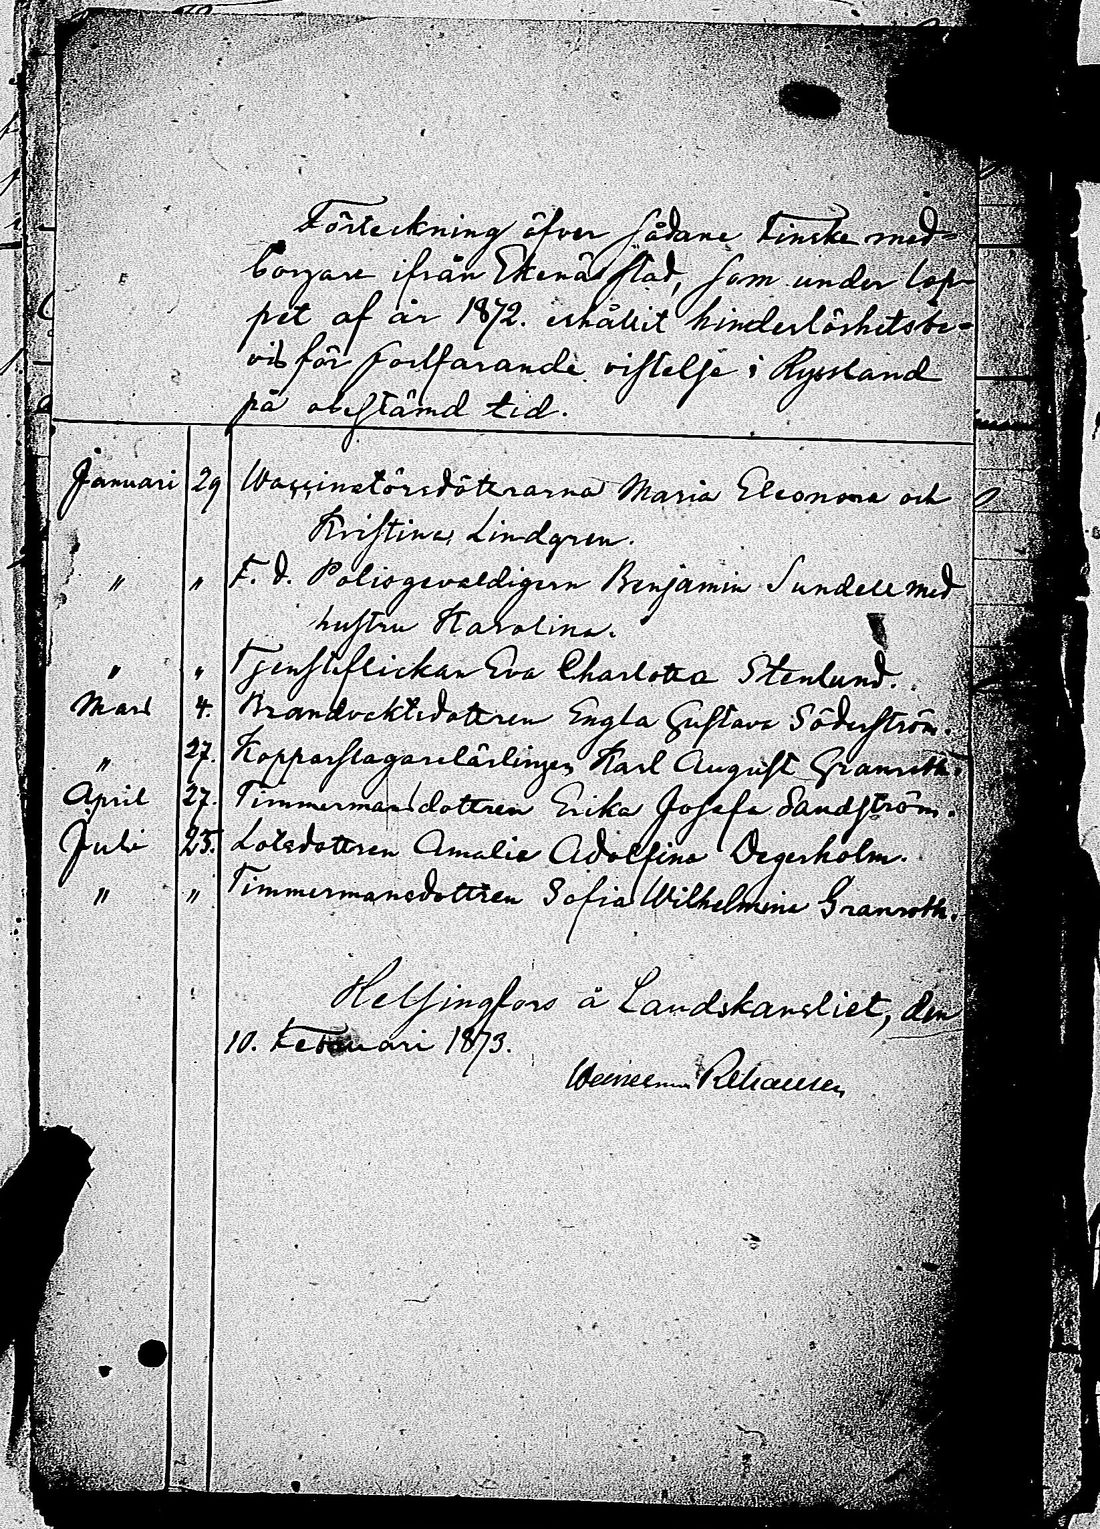 Förteckning öfver sådane Finske med-
borgare ifrån Ekenäs stad, som under lop-
pet af år 1872. erhållit hinderlöshetsbe-
vis för fortfarande vistelse i Ryssland
på obestämd tid.
Januari 29 Maria Eleonora och
Kristina Lindgren.
" " F. d. Polisgevaldigern Benjamin Sundell med
hustru Karolina.
" " Tjensteflickan Eva Charlotta Stenlund.
Mars 4. Brandvaktsdottren Engla Gustava Söderström.
" 27. Kopparslagarelärlingen Karl August Granroth.
April 27. Timmermansdottren Erika Josefa Sandström.
Juli 25. Lotsdottren Amalia Adolfina Degerholm.
" " Timmermansdottren Sofia Wilhelmina Granroth.
Helsingfors å Landskansliet, den
10. Februari 1873.